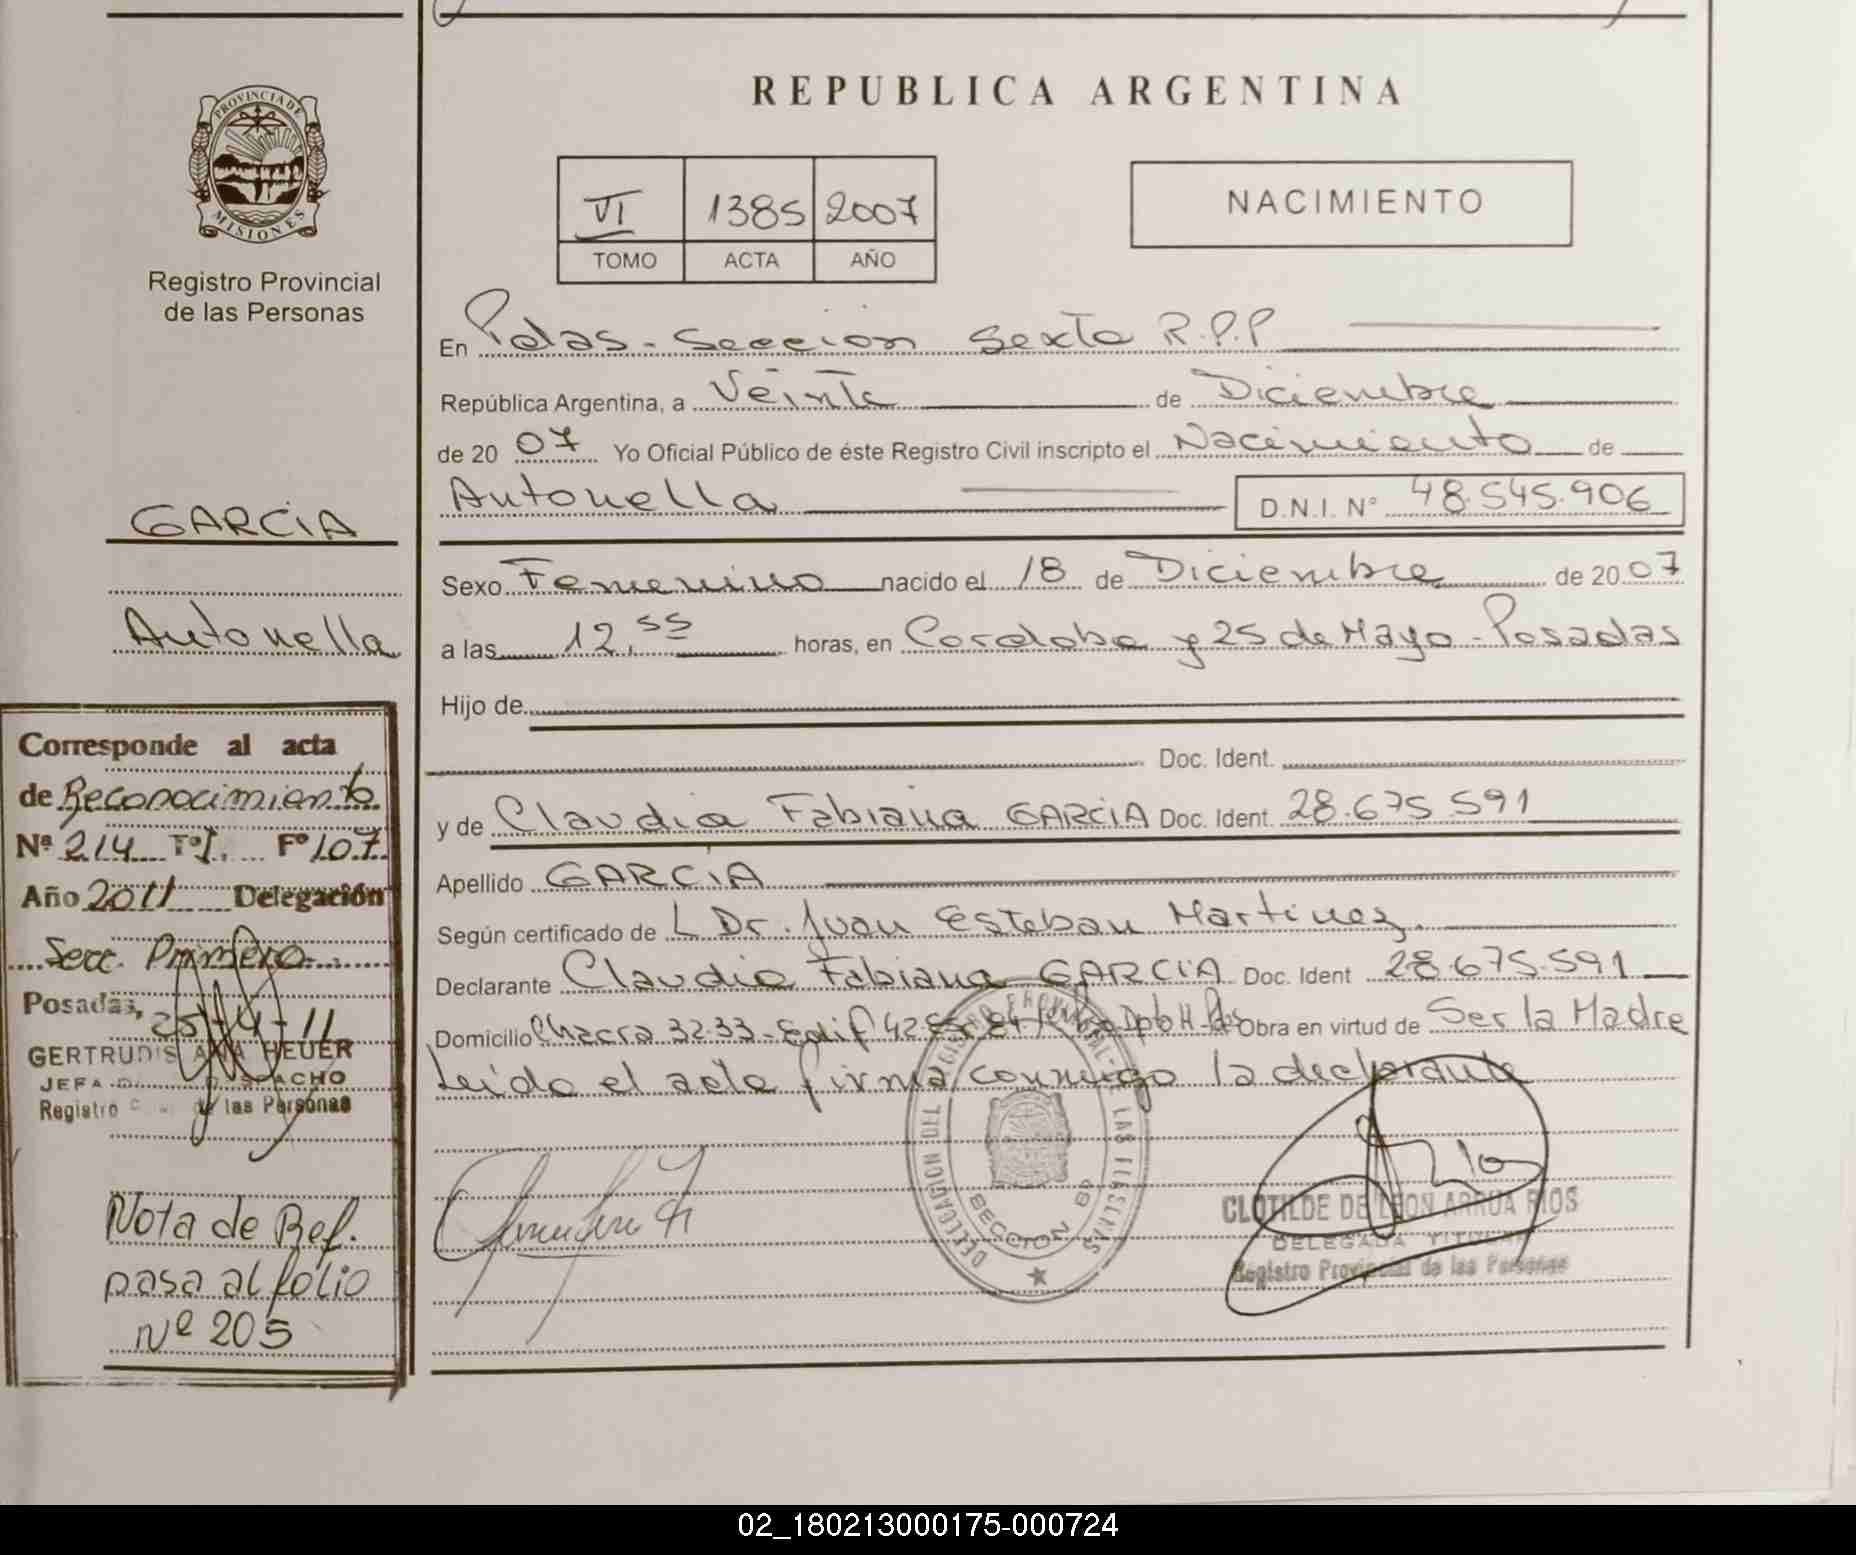 REPUBLICA ARGENTINA
PROVINCIA DE
MISIONES
Registro Provincial
de las Personas
VI 1385 2007
TOMO ACTA AÑO
NACIMIENTO
En Pdas. Seccion Sexta R.P.P
República Argentina, a Veinte de Diciembre
de 20 07 Yo Oficial Público de éste Registro Civil inscripto el Nacimiento de
Antonella D.N.I. N° 48.545.906
Sexo Femenino nacido el 18 de Diciembre de 20 07
a las 12,55 horas, en Cordoba y 25 de Mayo - Posadas
Hijo de
Doc. Ident.
y de Claudia Fabiana GARCIA Doc. Ident. 28.675.591
Apellido GARCIA
Según certificado de L Dr. Juan Esteban Martinez.
Declarante Claudia Fabiana GARCIA Doc. Ident 28.675.591
Domicilio Chacra 32-33 - Edif 42 Dpto H - Pdas Obra en virtud de Ser la Madre
Leido el acta firma conmigo la declarante
DELEGACION DEL REGISTRO PROVINCIAL DE LAS PERSONAS
SECCION 6ª
CLOTILDE DE LEON ARRUA RIOS
DELEGADA TITULAR
Registro Provincial de las Personas
GARCIA
Antonella
Corresponde al acta
de Reconocimiento
Nº 214 Tº I. Fº 107
Año 2011 Delegación
Secc. Primera
Posadas, 25-4-11
GERTRUDIS ANA HEUER
JEFA DESPACHO
Registro de las Personas
Nota de Ref.
pasa al folio
Nº 205
02_180213000175-000724